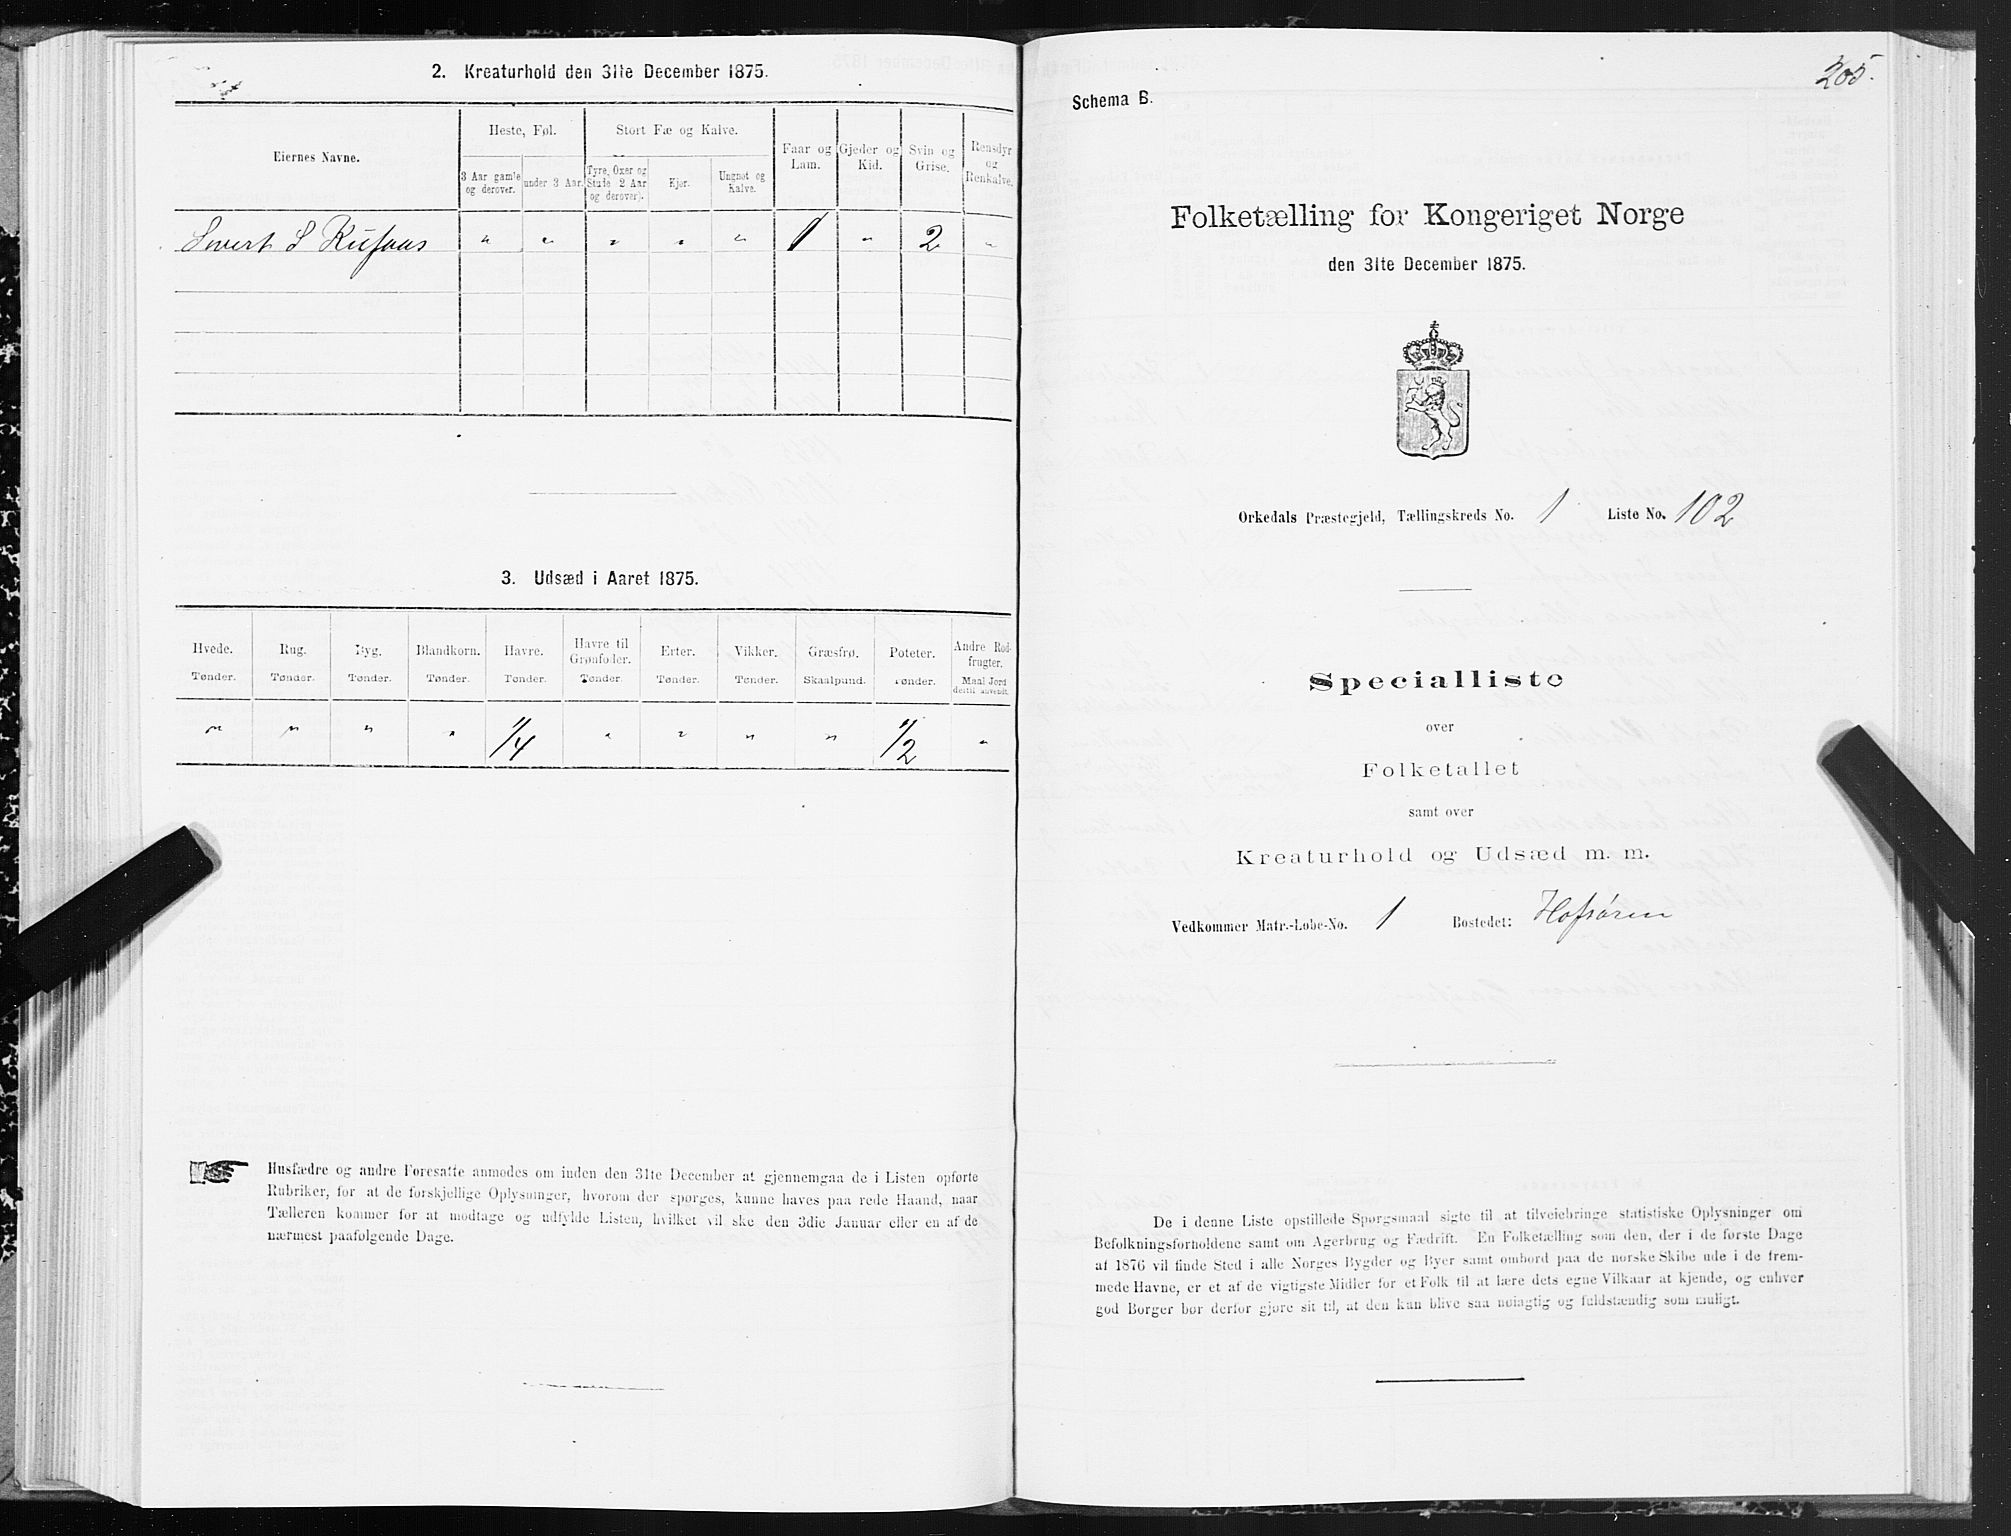 2. Kreaturhold den 31te December 1875.
Eiernes Navne.
Heste, Føl.
Stort Fæ og Kalve.
Faar og Lam.
Gjeder og Kid.
Svin og Grise.
Rensdyr og Renkalve.
3 Aar gamle og derover.
under 3 Aar.
Tyre, Oxer og Stude 2 Aar og derover).
Kjør.
Ungnøt og Kalve.
Sivert S Rufsaas " " " " " 1 " 2 "
3. Udsæd i Aaret 1875.
Hvede. Rug. Byg. Blandkorn. Havre. Havre til Grønfoder. Erter. Vikker. Græsfrø. Poteter. Andre Rodfrugter.
Tønder. Tønder. Tønder. Tønder. Tønder. Tønder. Tønder. Tønder. Skaalpund. Tønder. Maal Jord dertil anvendt.
" " " " 1/4 " " " " 1/2 "
Husfædre og andre Foresatte anmodes om inden den 31te December at gjennemgaa de i Listen opførte
Rubriker, for at de forskjellige Oplysninger, hvorom der spørges, kunne haves paa rede Haand, naar
Tælleren kommer for at modtage og udfylde Listen, hvilket vil ske den 3die Januar eller en af de
nærmest paafølgende Dage.
205.
Schema B.
Folketælling for Kongeriget Norge
den 31te December 1875.
Orkedals Præstegjeld, Tællingskreds No. 1 Liste No. 102
Specialliste
over
Folketallet
samt over
Kreaturhold og Udsæd m. m.
Vedkommer Matr.-Løbe-No. 1 Bostedet: Hofsøren
De i denne Liste opstillede Spørgsmaal sigte til at tilveiebringe statistiske Oplysninger om
Befolkningsforholdene samt om Agerbrug og Fædrift. En Folketælling som den, der i de første Dage
af 1876 vil finde Sted i alle Norges Bygder og Byer samt ombord paa de norske Skibe ude i de frem-
mede Havne, er et af de vigtigste Midler for et Folk til at lære dets egne Vilkaar at kjende, og enhver
god Borger bør derfor gjøre sit til, at den kan blive saa nøiagtig og fuldstændig som muligt.